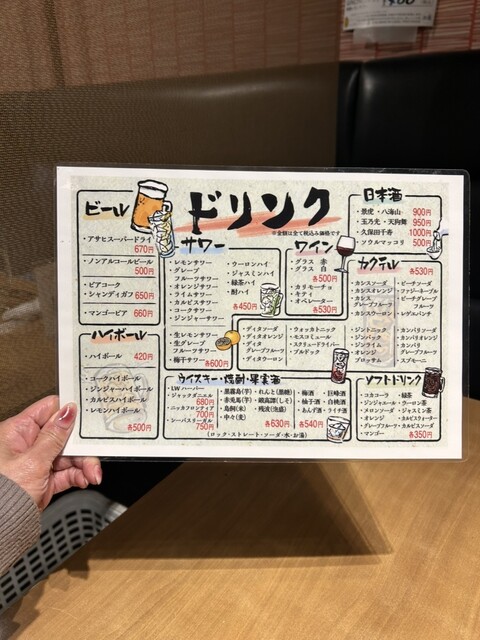 ドリンク
※金額は全て税込み価格です
ビール
・アサヒスーパードライ
670円
・ノンアルコールビール
500円
・ビアコーク
・シャンディガフ 650円
・マンゴービア 660円
ハイボール
・ハイボール 420円
・コークハイボール
・ジンジャーハイボール
・カルピスハイボール
・レモンハイボール
各500円
サワー
・レモンサワー
・グレープ
フルーツサワー
・オレンジサワー
・ライムサワー
・カルピスサワー
・コークサワー
・ジンジャーサワー
・ウーロンハイ
・ジャスミンハイ
・緑茶ハイ
・酎ハイ
各450円
・生レモンサワー
・生グレープ
フルーツサワー
・梅干サワー
各600円
ワイン
・グラス 赤
・グラス 白
各500円
・カリモーチョ
・キティ
・オペレーター
各530円
日本酒
・景虎・八海山 900円
・玉乃光・天狗舞 950円
・久保田千寿 1000円
・ソウルマッコリ 500円
カクテル
各530円
・カシスソーダ
・カシスオレンジ
・カシス
グレープフルーツ
・カシスウーロン
・ピーチソーダ
・ファジーネーブル
・ピーチグレープ
フルーツ
・レゲエパンチ
・ディタソーダ
・ディタオレンジ
・ディタ
グレープフルーツ
・ディタウーロン
・ウォッカトニック
・モスコミュール
・スクリュードライバー
・ブルドック
・ジントニック
・ジンバック
・ジンライム
・オレンジ
ブロッサム
・カンパリソーダ
・カンパリオレンジ
・カンパリ
グレープフルーツ
・スプモーニ
ウイスキー・焼酎・果実酒
・I.W ハーパー
・ジャックダニエル
680円
・ニッカフロンティア
700円
・シーバスリーガル
750円
・黒霧島(芋)・れんと(黒糖)
・赤兎馬(芋)・鍛高譚(しそ)
・島飼(米)・残波(泡盛)
・中々(麦)
各630円
・梅酒・巨峰酒
・柚子酒・白桃酒
・あんず酒・ライチ酒
各540円
(ロック・ストレート・ソーダ・水・お湯)
ソフトドリンク
・コカコーラ・緑茶
・ジンジャエール・ウーロン茶
・メロンソーダ・ジャスミン茶
・オレンジ・カルピスウォーター
・グレープフルーツ・カルピスソーダ
・マンゴー
各350円